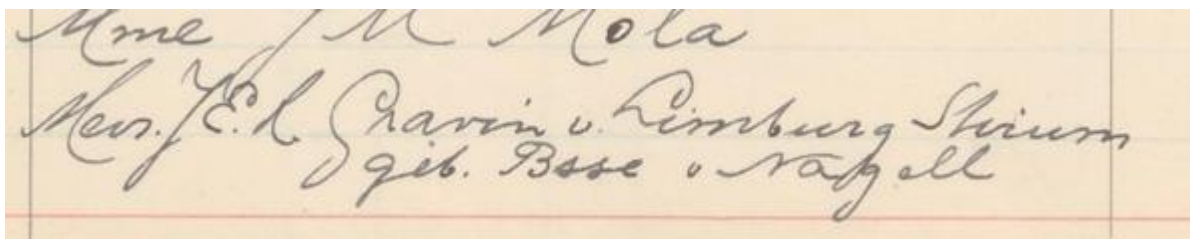 Mme J M Mola
Mevr. J. E. L. Gravin v. Limburg Stirum
geb. Bsse v Nagell